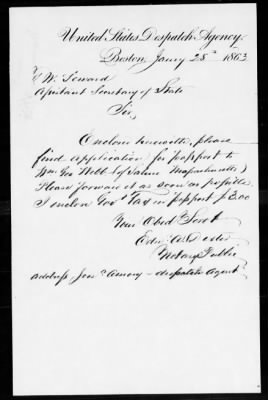 United States Despatch Agency
Boston, Jany 28th 1863
F W. Seward
Assistant Secretary of State
Sir,
Enclose herewith, please
find application for passport to
Wm Geo Webb (of Salem Massachusetts)
Please forward it as soon as possible.
I enclose Govt Tax on passport $3.00
Your Obed Servt
Edw.
Notary Public
address, Jos Amory - despatch Agent